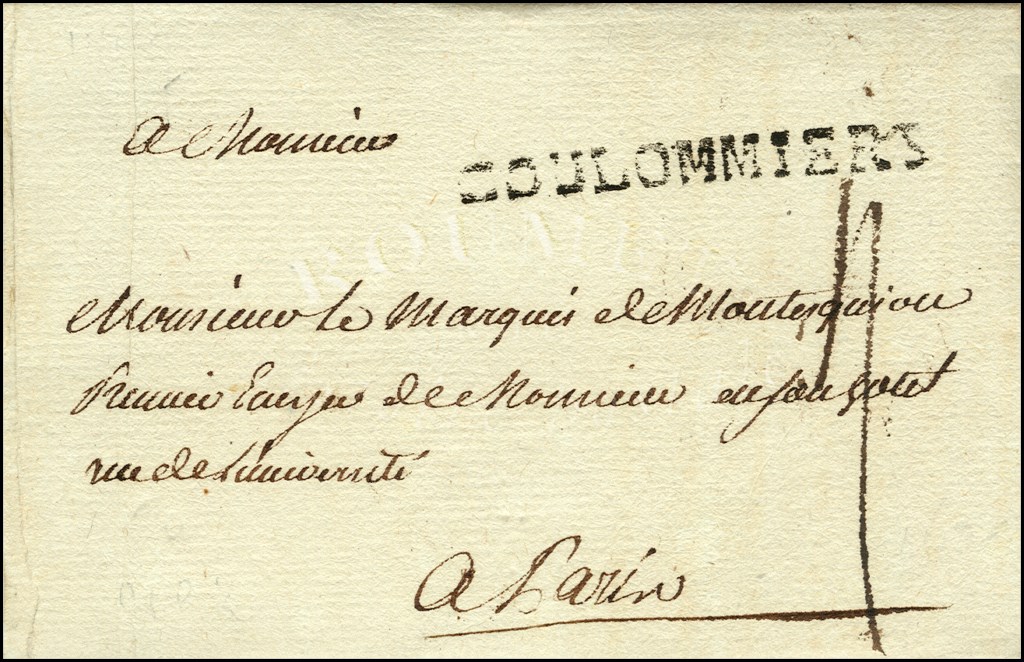 A Monsieur
COULOMMIERS
Monsieur le Marquis de Montesquiou
Premier Ecuyer de Monsieur en son hotel
rue de l'université
A Paris